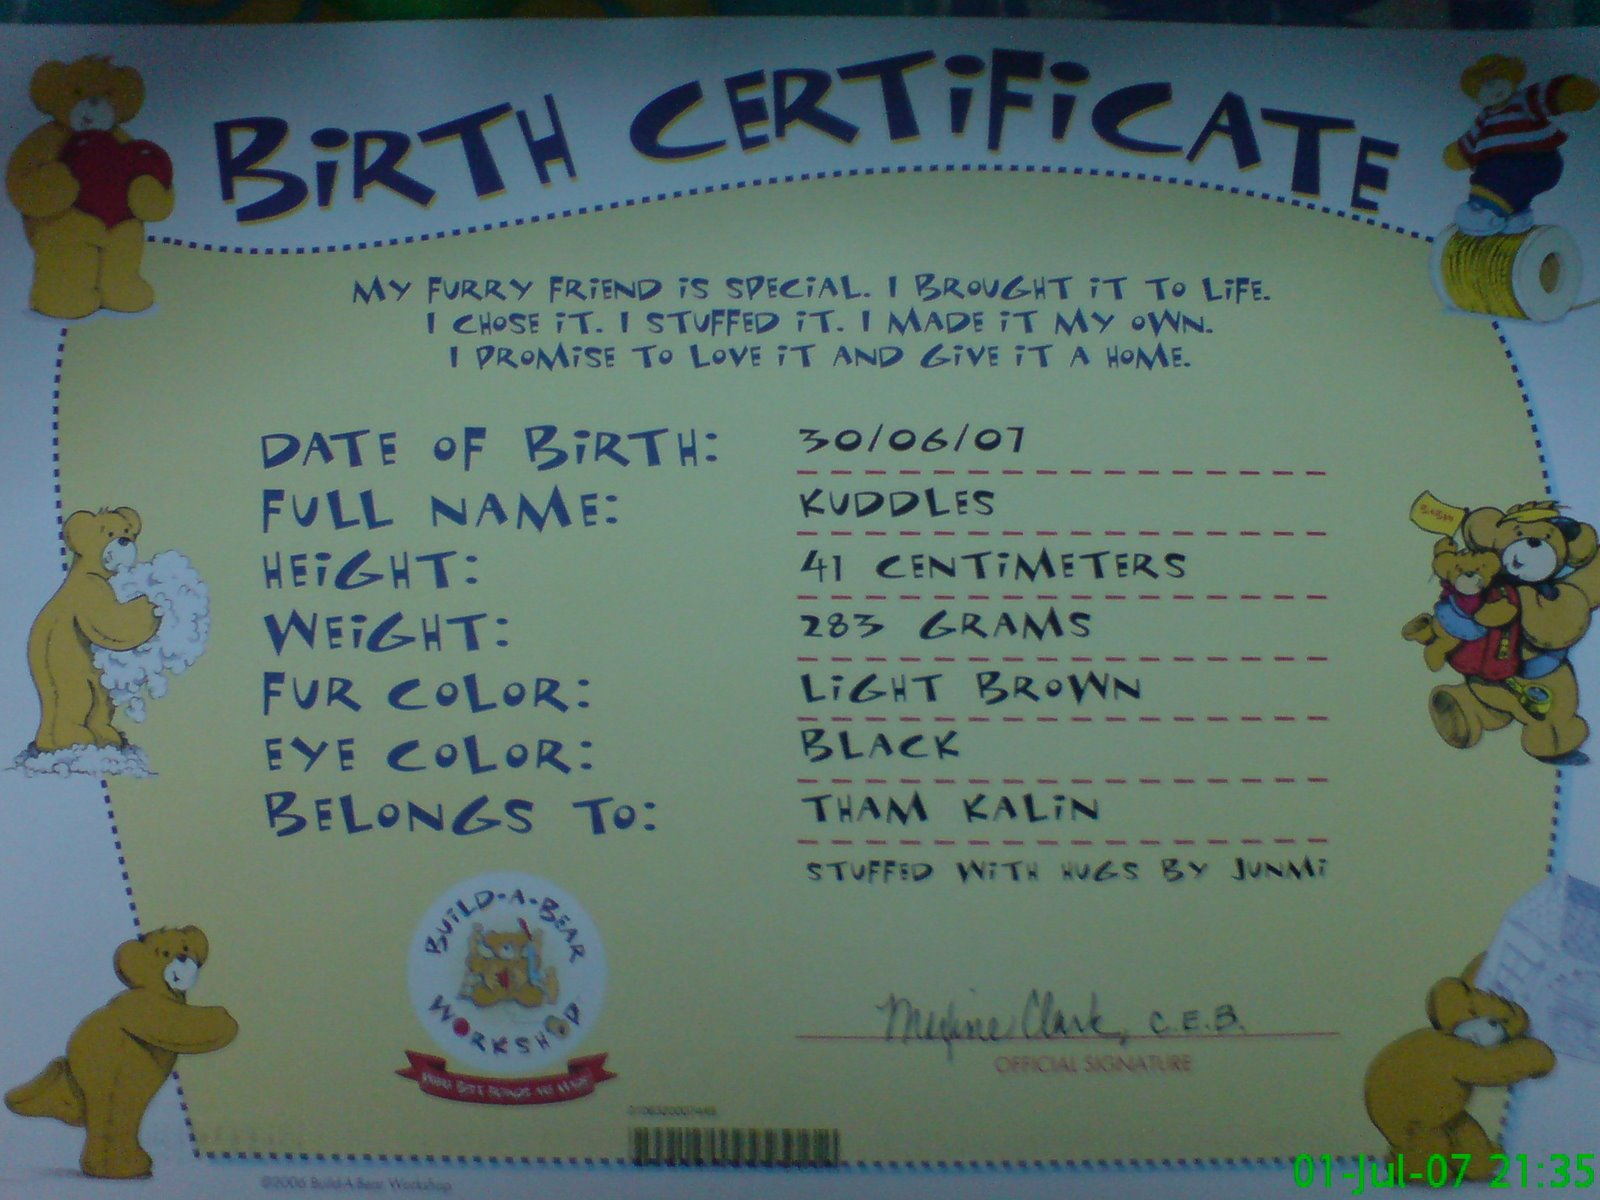 BIRTH CERTIFICATE
MY FURRY FRIEND IS SPECIAL. I BROUGHT IT TO LIFE.
I CHOSE IT. I STUFFED IT. I MADE IT MY OWN.
I PROMISE TO LOVE IT AND GIVE IT A HOME.
DATE OF BIRTH: 30/06/07
FULL NAME: KUDDLES
HEIGHT: 41 CENTIMETERS
WEIGHT: 283 GRAMS
FUR COLOR: LIGHT BROWN
EYE COLOR: BLACK
BELONGS TO: THAM KALIN
STUFFED WITH HUGS BY JUNMI
BUILD-A-BEAR
WORKSHOP
WHERE BEST FRIENDS ARE MADE
Maxine Clark, C.E.B.
OFFICIAL SIGNATURE
©2006 Build-A-Bear Workshop
01-Jul-07 21:35